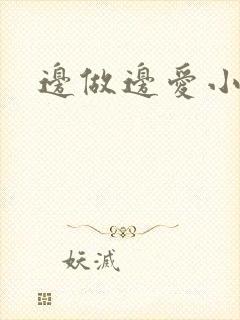 邊做邊愛小
妖滅